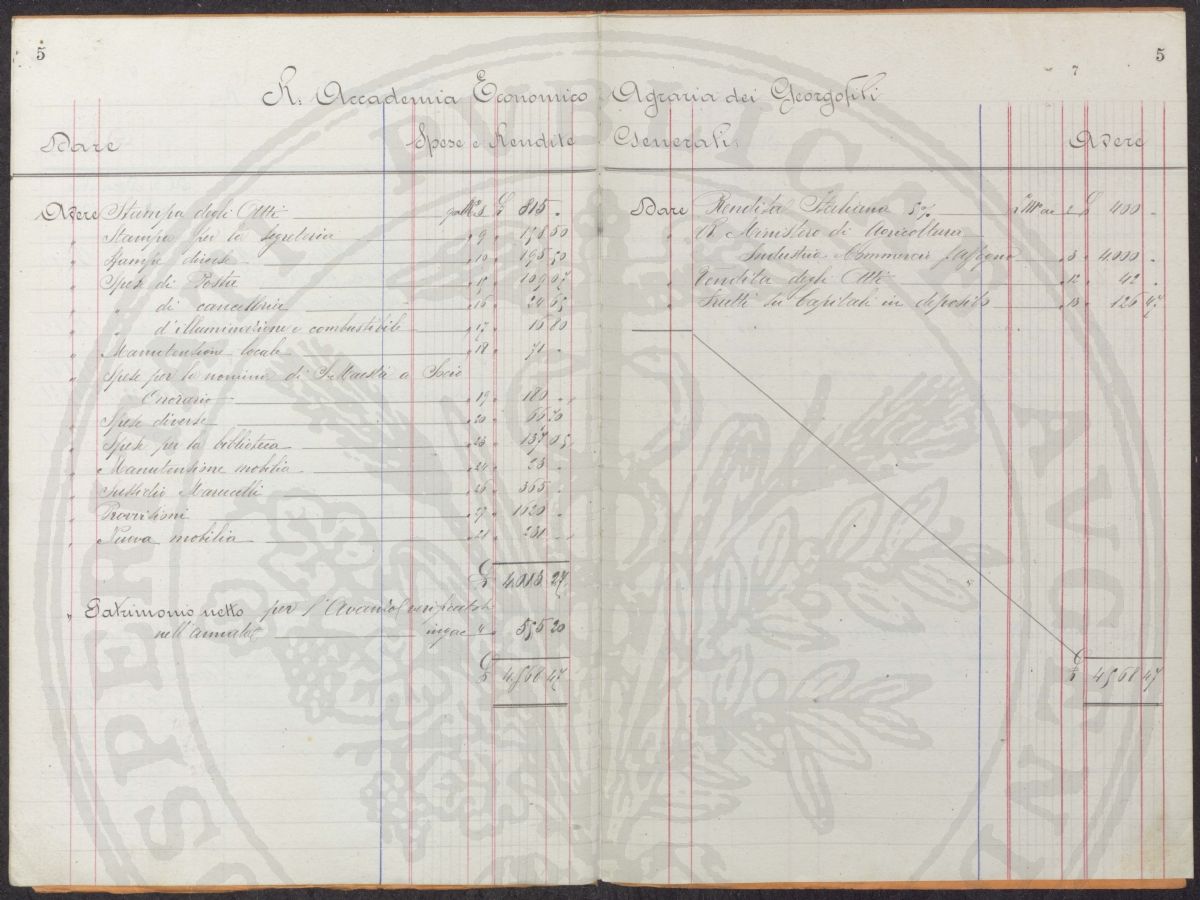 5
5
7
R. Accademia Economico Agraria dei Georgofili
Dare Spese e Rendite Generali Avere
Avere Stampa degli Atti 8 £ 815 "
" Stampa per la segreteria " 9 " 60
" Stampe diverse " 10 " 195 50
" Spese di Posta " 109 07
" " di cancelleria " 16 " 24 65
" " d'illuminazione e combustibile " 17 " 16 80
" Manutensione locale " 18 " 71 "
" Spese per la nomina di S. Maestà a Socio
Onorario " 19 " 180 "
" Spese diverse " 20 " 66 70
" Spese per la biblioteca " 23 " 137 05
" Manutensione mobilia " 24 " 23 "
" Sussidio Marucelli " 26 " 365 "
" Provvisioni " 27 " 1620 "
" Nuova mobilia " 21 " 231 "
£ 4,013 27
" Patrimonio netto per l'Avanzo verificatosi
nell'annata 4 " 555 20
£ 4,568 47
Dare Rendita Italiana 5% 2 £ 400 "
" R. Ministero di Agricoltura
Industria e Commercio " 3 " 4000 "
" Vendita degli Atti " 12 " 42 "
" Frutti su Capitali in deposito " 13 " 126 47
£ 4568 47
PUBLICAE
AVGENDAE
PROSPERITATI